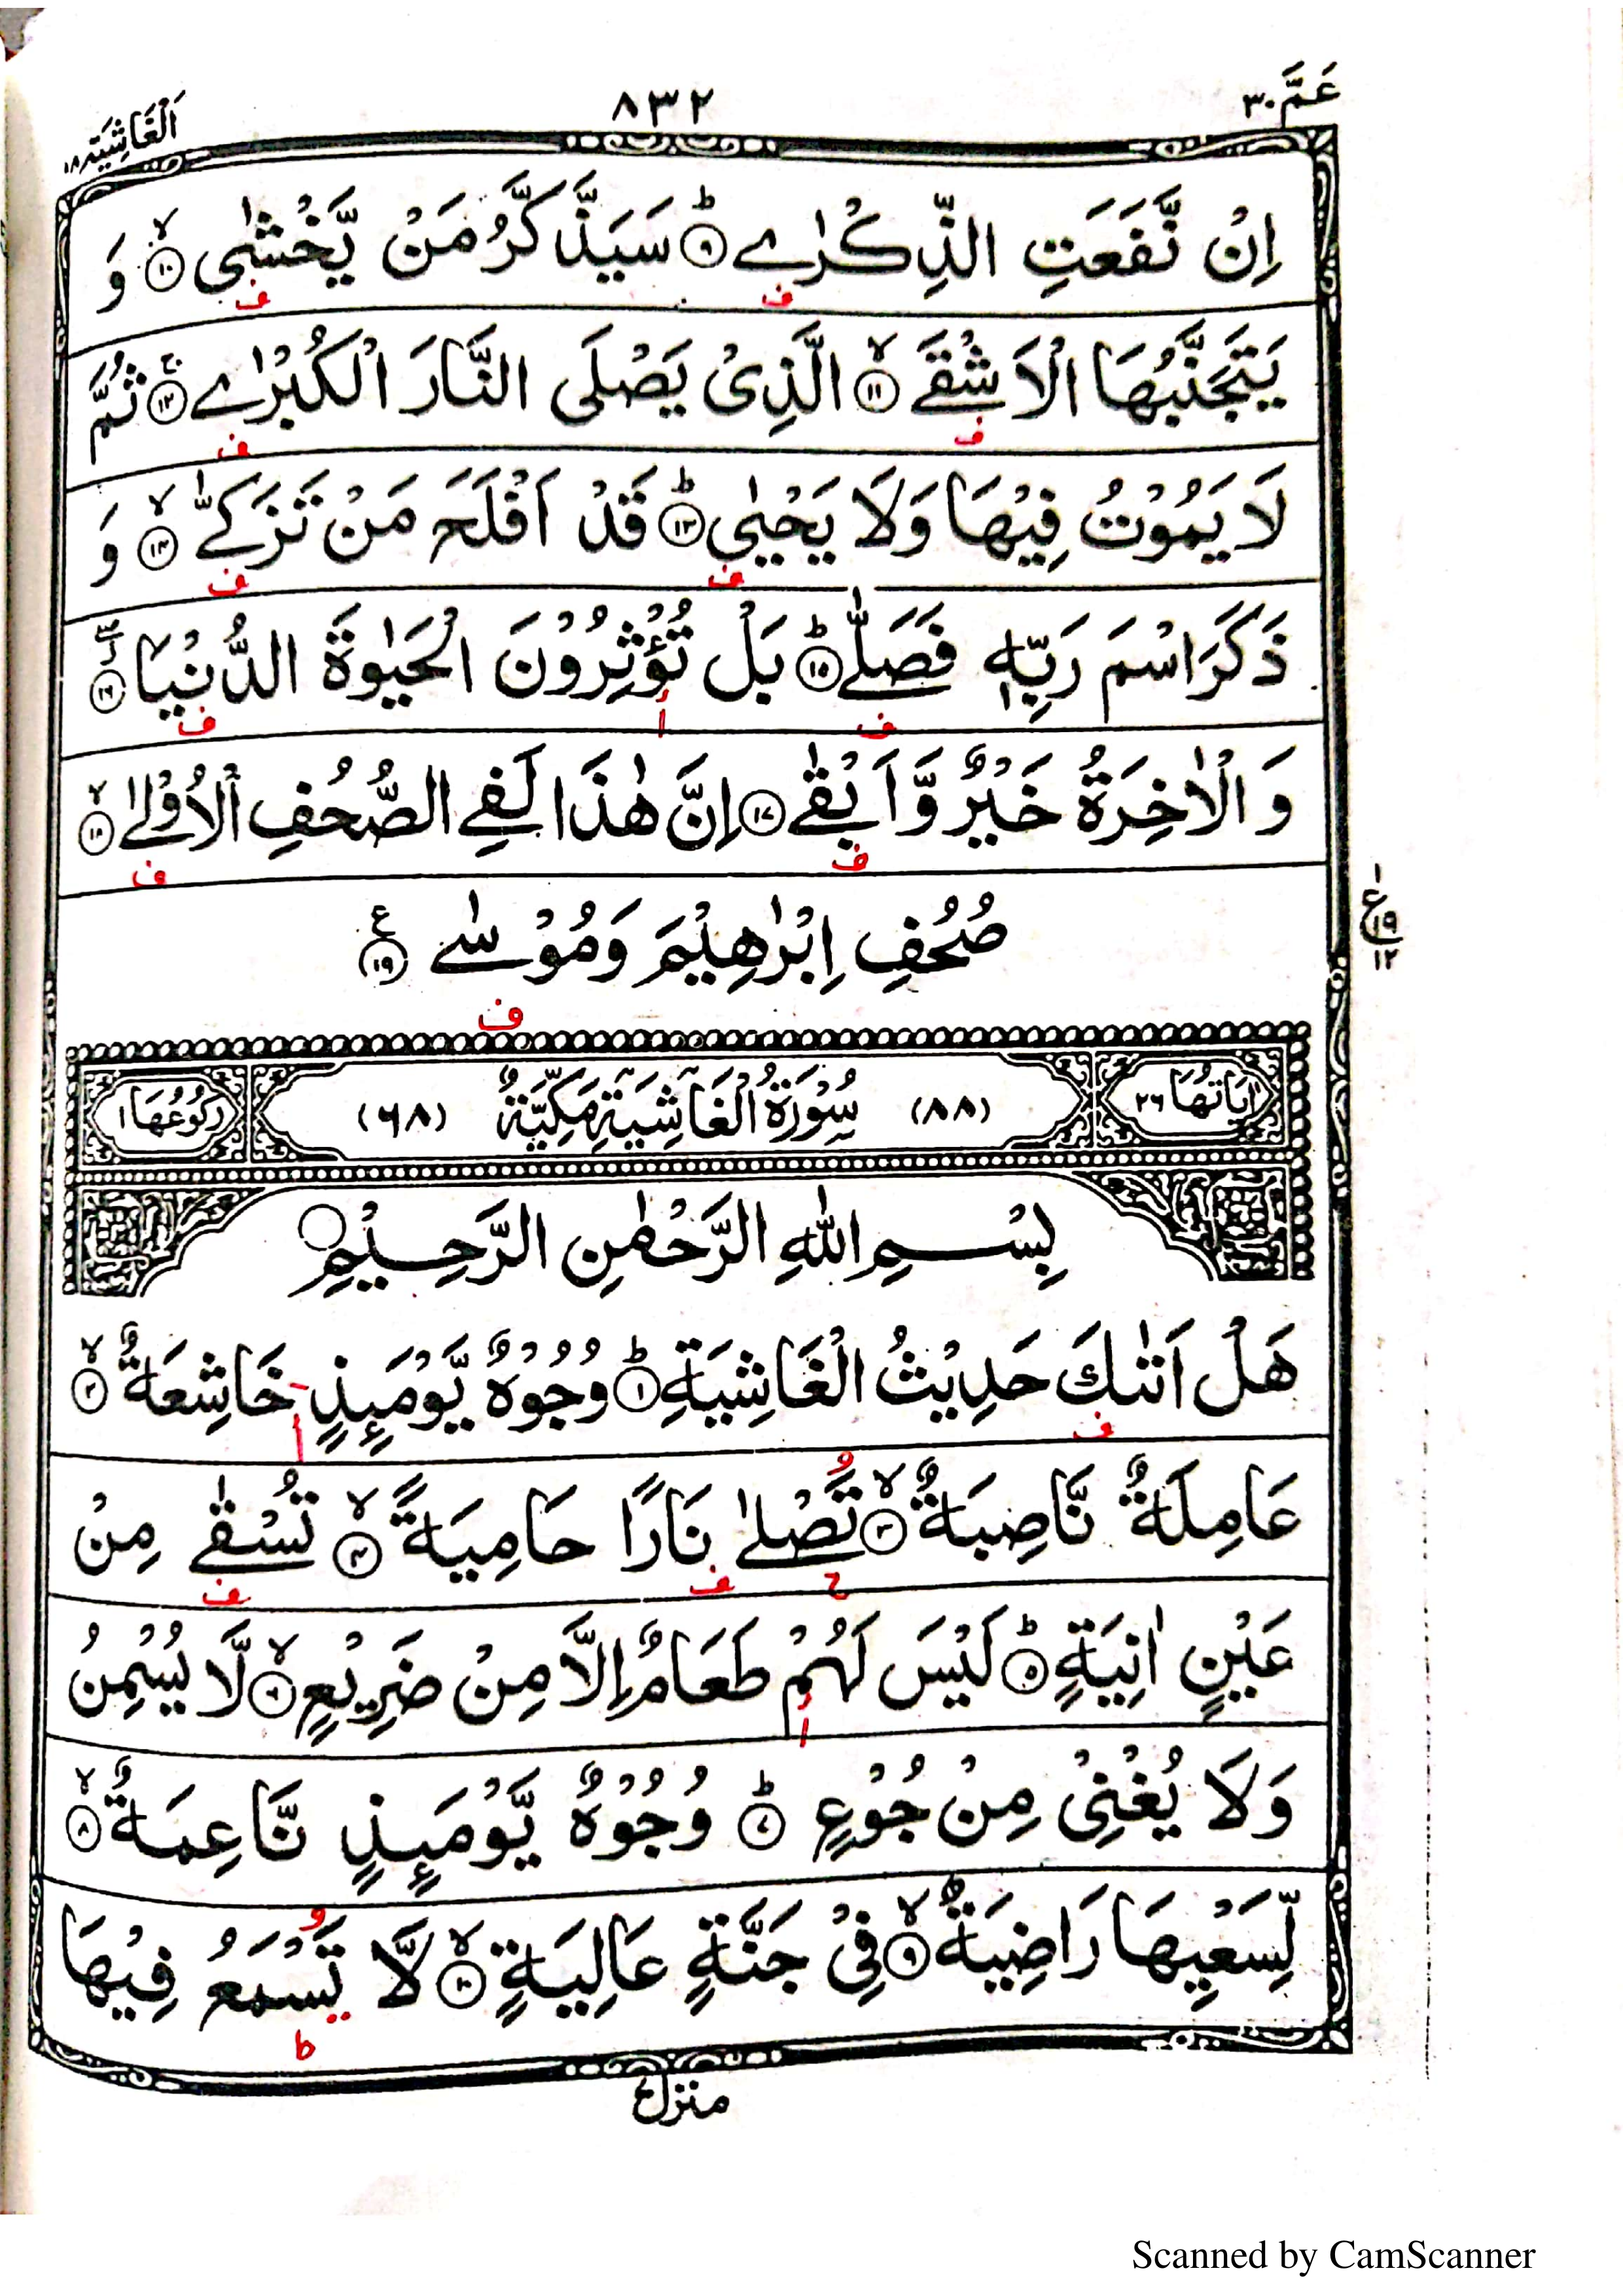 عَمَّ ٣٠ ٨٣٢ اَلْغَاشِيَة ٨٨
اِنْ نَّفَعَتِ الذِّكْرٰى ؕ‏ ﴿۹﴾ سَيَذَّكَّرُ مَنْ يَّخْشٰى ۙ‏ ﴿۱۰﴾ وَ
ف ف
يَتَجَنَّبُهَا الْاَشْقَى ۙ‏ ﴿۱۱﴾ الَّذِىْ يَصْلَى النَّارَ الْكُبْرٰى ۚ‏ ﴿۱۲﴾ ثُمَّ
ف ف
لَا يَمُوْتُ فِيْهَا وَلَا يَحْيٰى ؕ‏ ﴿۱۳﴾ قَدْ اَفْلَحَ مَنْ تَزَكّٰى ۙ‏ ﴿۱۴﴾ وَ
ف ف
ذَكَرَ اسْمَ رَبِّهٖ فَصَلّٰى ؕ‏ ﴿۱۵﴾ بَلْ تُؤْثِرُوْنَ الْحَيٰوةَ الدُّنْيَا ﴿۱۶﴾
ف أ ف
وَالْاٰخِرَةُ خَيْرٌ وَّاَبْقٰى ﴿۱۷﴾ اِنَّ هٰذَا لَفِى الصُّحُفِ الْاُوْلٰى ۙ‏ ﴿۱۸﴾
ف ف
صُحُفِ اِبْرٰهِيْمَ وَمُوْسٰى ﴿۱۹﴾ ع
١ ع ١٩ ١٢
ف
اٰيَاتُهَا ٢٦ (٨٨) سُوْرَةُ الْغَاشِيَةِ مَكِّيَّةٌ (٦٨) رُكُوْعُهَا ١
بِسْمِ اللّٰهِ الرَّحْمٰنِ الرَّحِيْمِ
هَلْ اَتٰىكَ حَدِيْثُ الْغَاشِيَةِ ؕ‏ ﴿۱﴾ وُجُوْهٌ يَّوْمَٮِٕذٍ خَاشِعَةٌ ۙ‏ ﴿۲﴾
ف أ
عَامِلَةٌ نَّاصِبَةٌ ۙ‏ ﴿۳﴾ تَصْلٰى نَارًا حَامِيَةً ۙ‏ ﴿۴﴾ تُسْقٰى مِنْ
ح ف ف
عَيْنٍ اٰنِيَةٍ ؕ‏ ﴿۵﴾ لَيْسَ لَهُمْ طَعَامٌ اِلَّا مِنْ ضَرِيْعٍ ۙ‏ ﴿۶﴾ لَّا يُسْمِنُ
أ
وَلَا يُغْنِىْ مِنْ جُوْعٍ ؕ‏ ﴿۷﴾ وُجُوْهٌ يَّوْمَٮِٕذٍ نَّاعِمَةٌ ۙ‏ ﴿۸﴾
لِّسَعْيِهَا رَاضِيَةٌ ۙ‏ ﴿۹﴾ فِىْ جَنَّةٍ عَالِيَةٍ ۙ‏ ﴿۱۰﴾ لَّا تَسْمَعُ فِيْهَا
ط
منزل ٧
Scanned by CamScanner